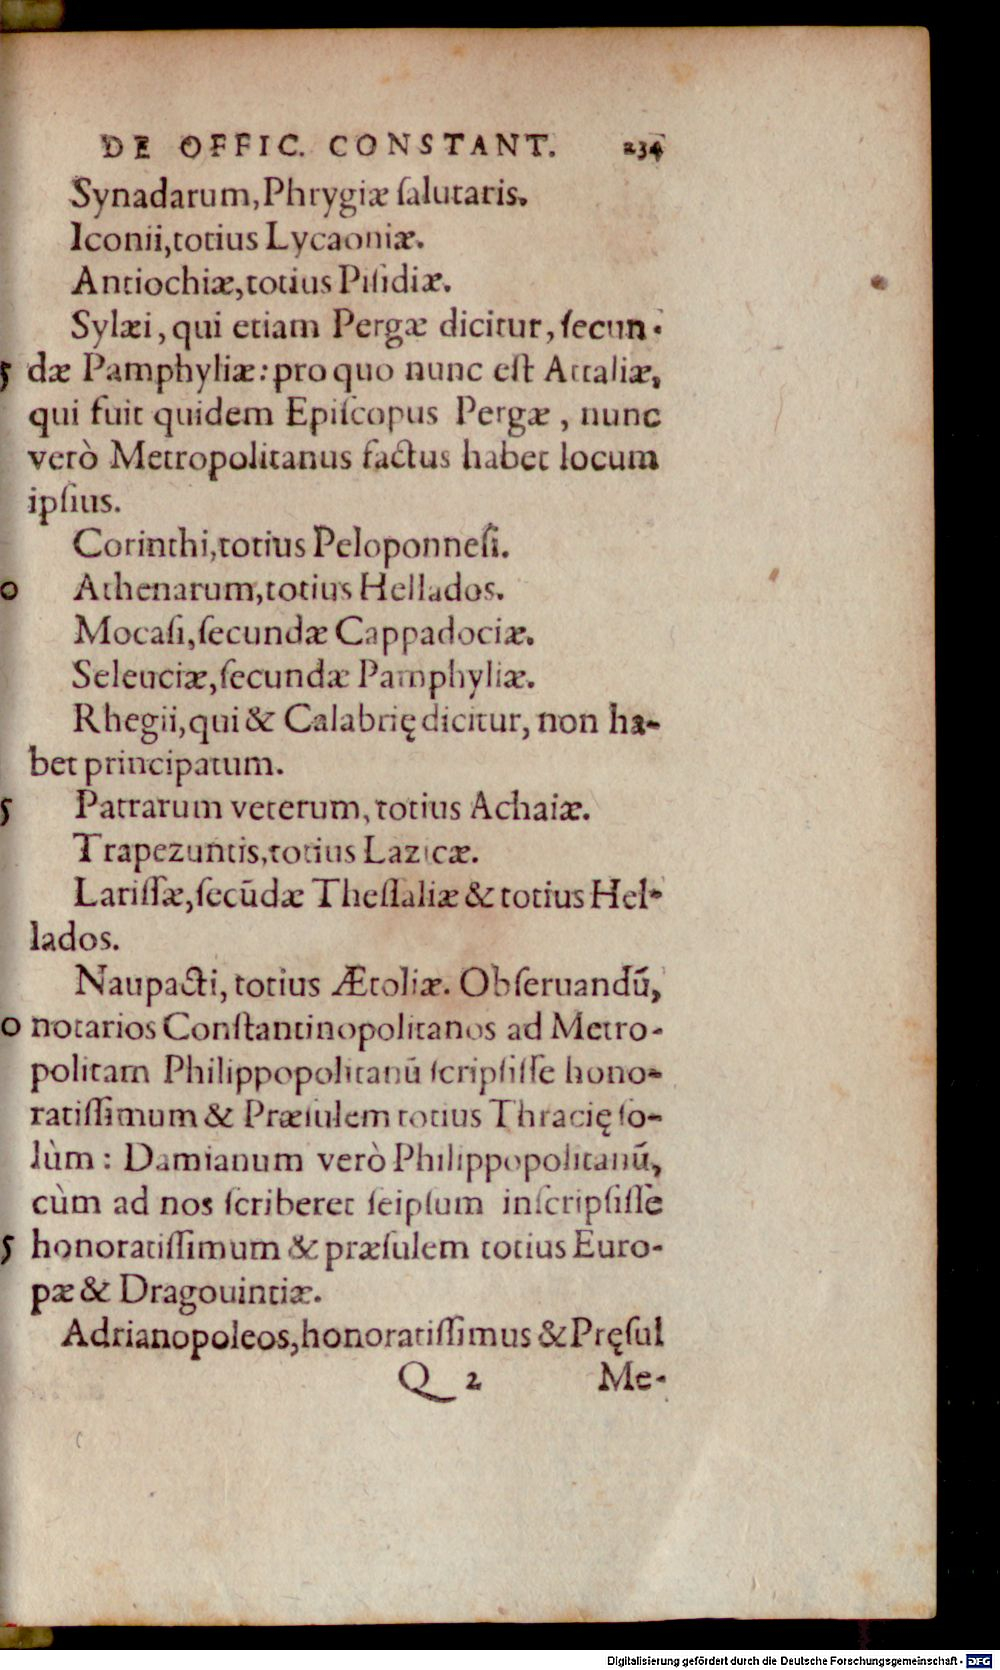 DE OFFIC. CONSTANT. 234
Synadarum, Phrygiæ ſalutaris.
Iconii, totius Lycaoniæ.
Antiochiæ, totius Piſidiæ.
Sylæi, qui etiam Pergæ dicitur, ſecun-
5 dæ Pamphyliæ: pro quo nunc eſt Attaliæ,
qui fuit quidem Epiſcopus Pergæ, nunc
verò Metropolitanus factus habet locum
ipſius.
Corinthi, totius Peloponneſi.
0 Athenarum, totius Hellados.
Mocaſi, ſecundæ Cappadociæ.
Seleuciæ, ſecundæ Pamphyliæ.
Rhegii, qui & Calabrię dicitur, non ha-
bet principatum.
5 Patrarum veterum, totius Achaiæ.
Trapezuntis, totius Lazicæ.
Lariſſæ, ſecũdæ Theſſaliæ & totius Hel-
lados.
Naupacti, totius Ætoliæ. Obſeruandũ,
0 notarios Conſtantinopolitanos ad Metro-
politam Philippopolitanũ ſcripſiſſe hono-
ratiſſimum & Præſulem totius Thracię ſo-
lùm: Damianum verò Philippopolitanũ,
cùm ad nos ſcriberet ſeipſum inſcripſiſſe
5 honoratiſſimum & præſulem totius Euro-
pæ & Dragouintiæ.
Adrianopoleos, honoratiſſimus & Pręſul
Q 2 Me-
Digitalisierung gefördert durch die Deutsche Forschungsgemeinschaft - DFG